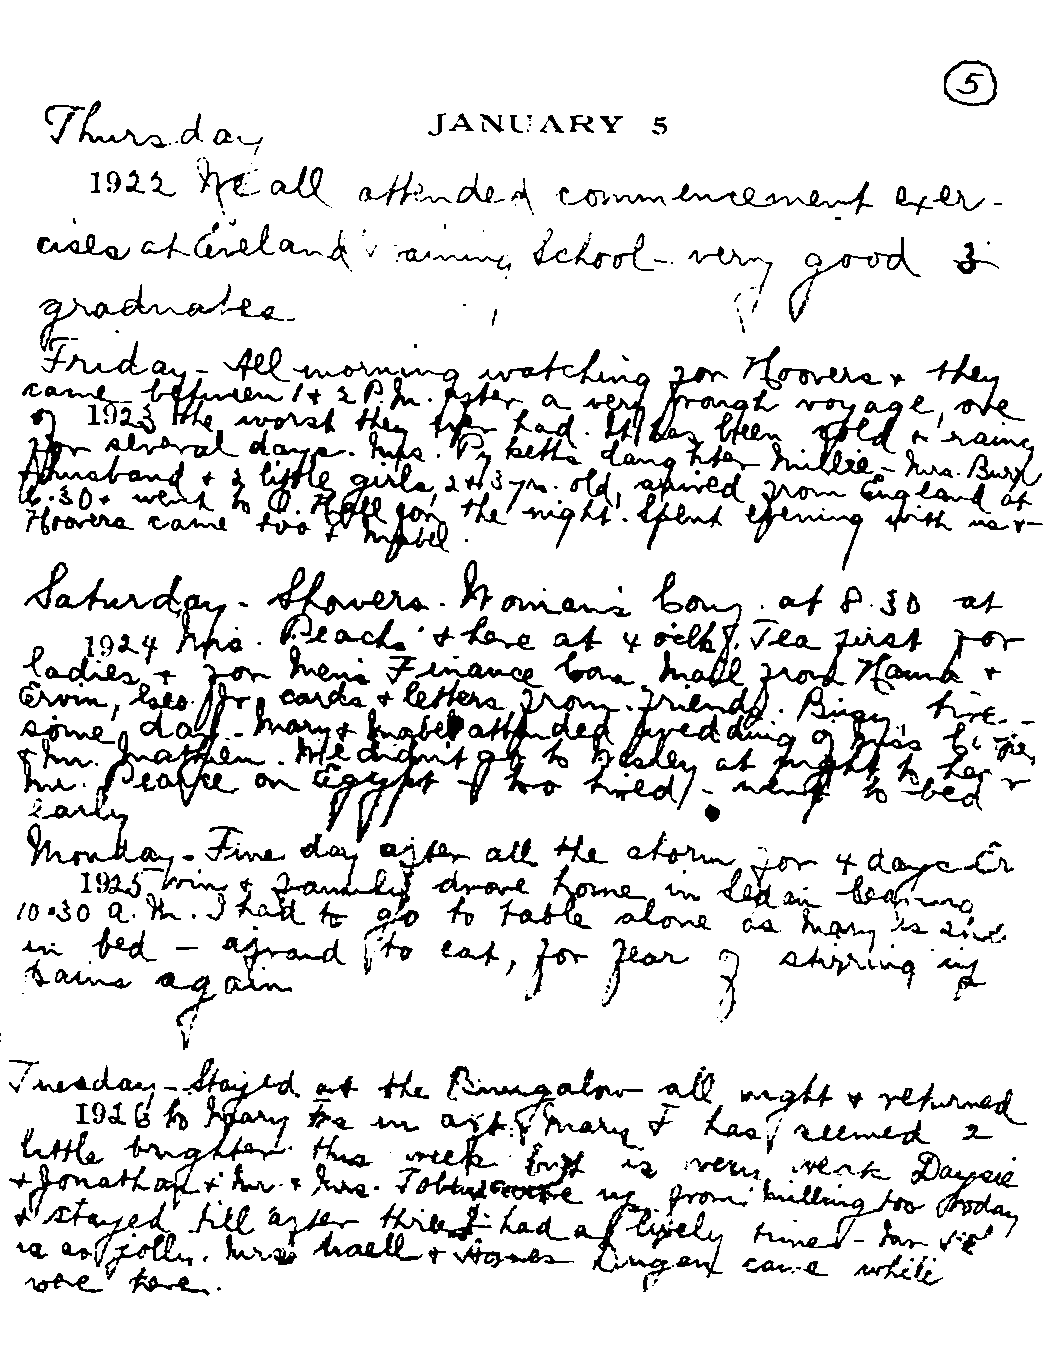 5
Thursday JANUARY 5
1922 We all attended commencement exer-
cises at Eveland School - very good 3
graduates.
Friday - All morning watching for Hoovers & they
came between 1 & 2 P.M. after a very rough voyage, one
of 1923 the worst they ever had. It has been cold & rainy
for several days. Mrs. Pyketts daughter Millie - Mrs. Burr
husband & 2 little girls, 2 & 3 yrs. old, arrived from England at
6.30 & went to Hall for the night. Spent evening with us &
Hoovers came too & Mabel.
Saturday - Showers. Woman's Cong. at 8.30 at
1924 Mrs. Peach's & here at 4 o'clk. Tea first for
ladies & for Men's Finance Com. Mail from Hanna &
Ervin, cards & letters from friends. Busy, tire-
some day - Mary & Mabel attended wedding of Miss
& Mr. Mathew. We didn't go to Wesley at night to hear
Mr. Pearce on Egypt - too tired - went to bed
early
Monday - Fine day after all the storm for 4 days Er
1925 win & family drove home in Sedan leaving
10.30 A.M. I had to go to table alone as Mary is still
in bed - afraid to eat, for fear of stirring up
pains again
Tuesday - Stayed at the Bungalow all night & returned
1926 to Mary in aft. Mary F has seemed a
little brighter this week but is very weak Daysie
& Jonathan & Mr. & Mrs. were up from Milling too today
& stayed till after three I had a lively time - Mr
is so jolly. Mrs & Agnes Dugan came while
were here.